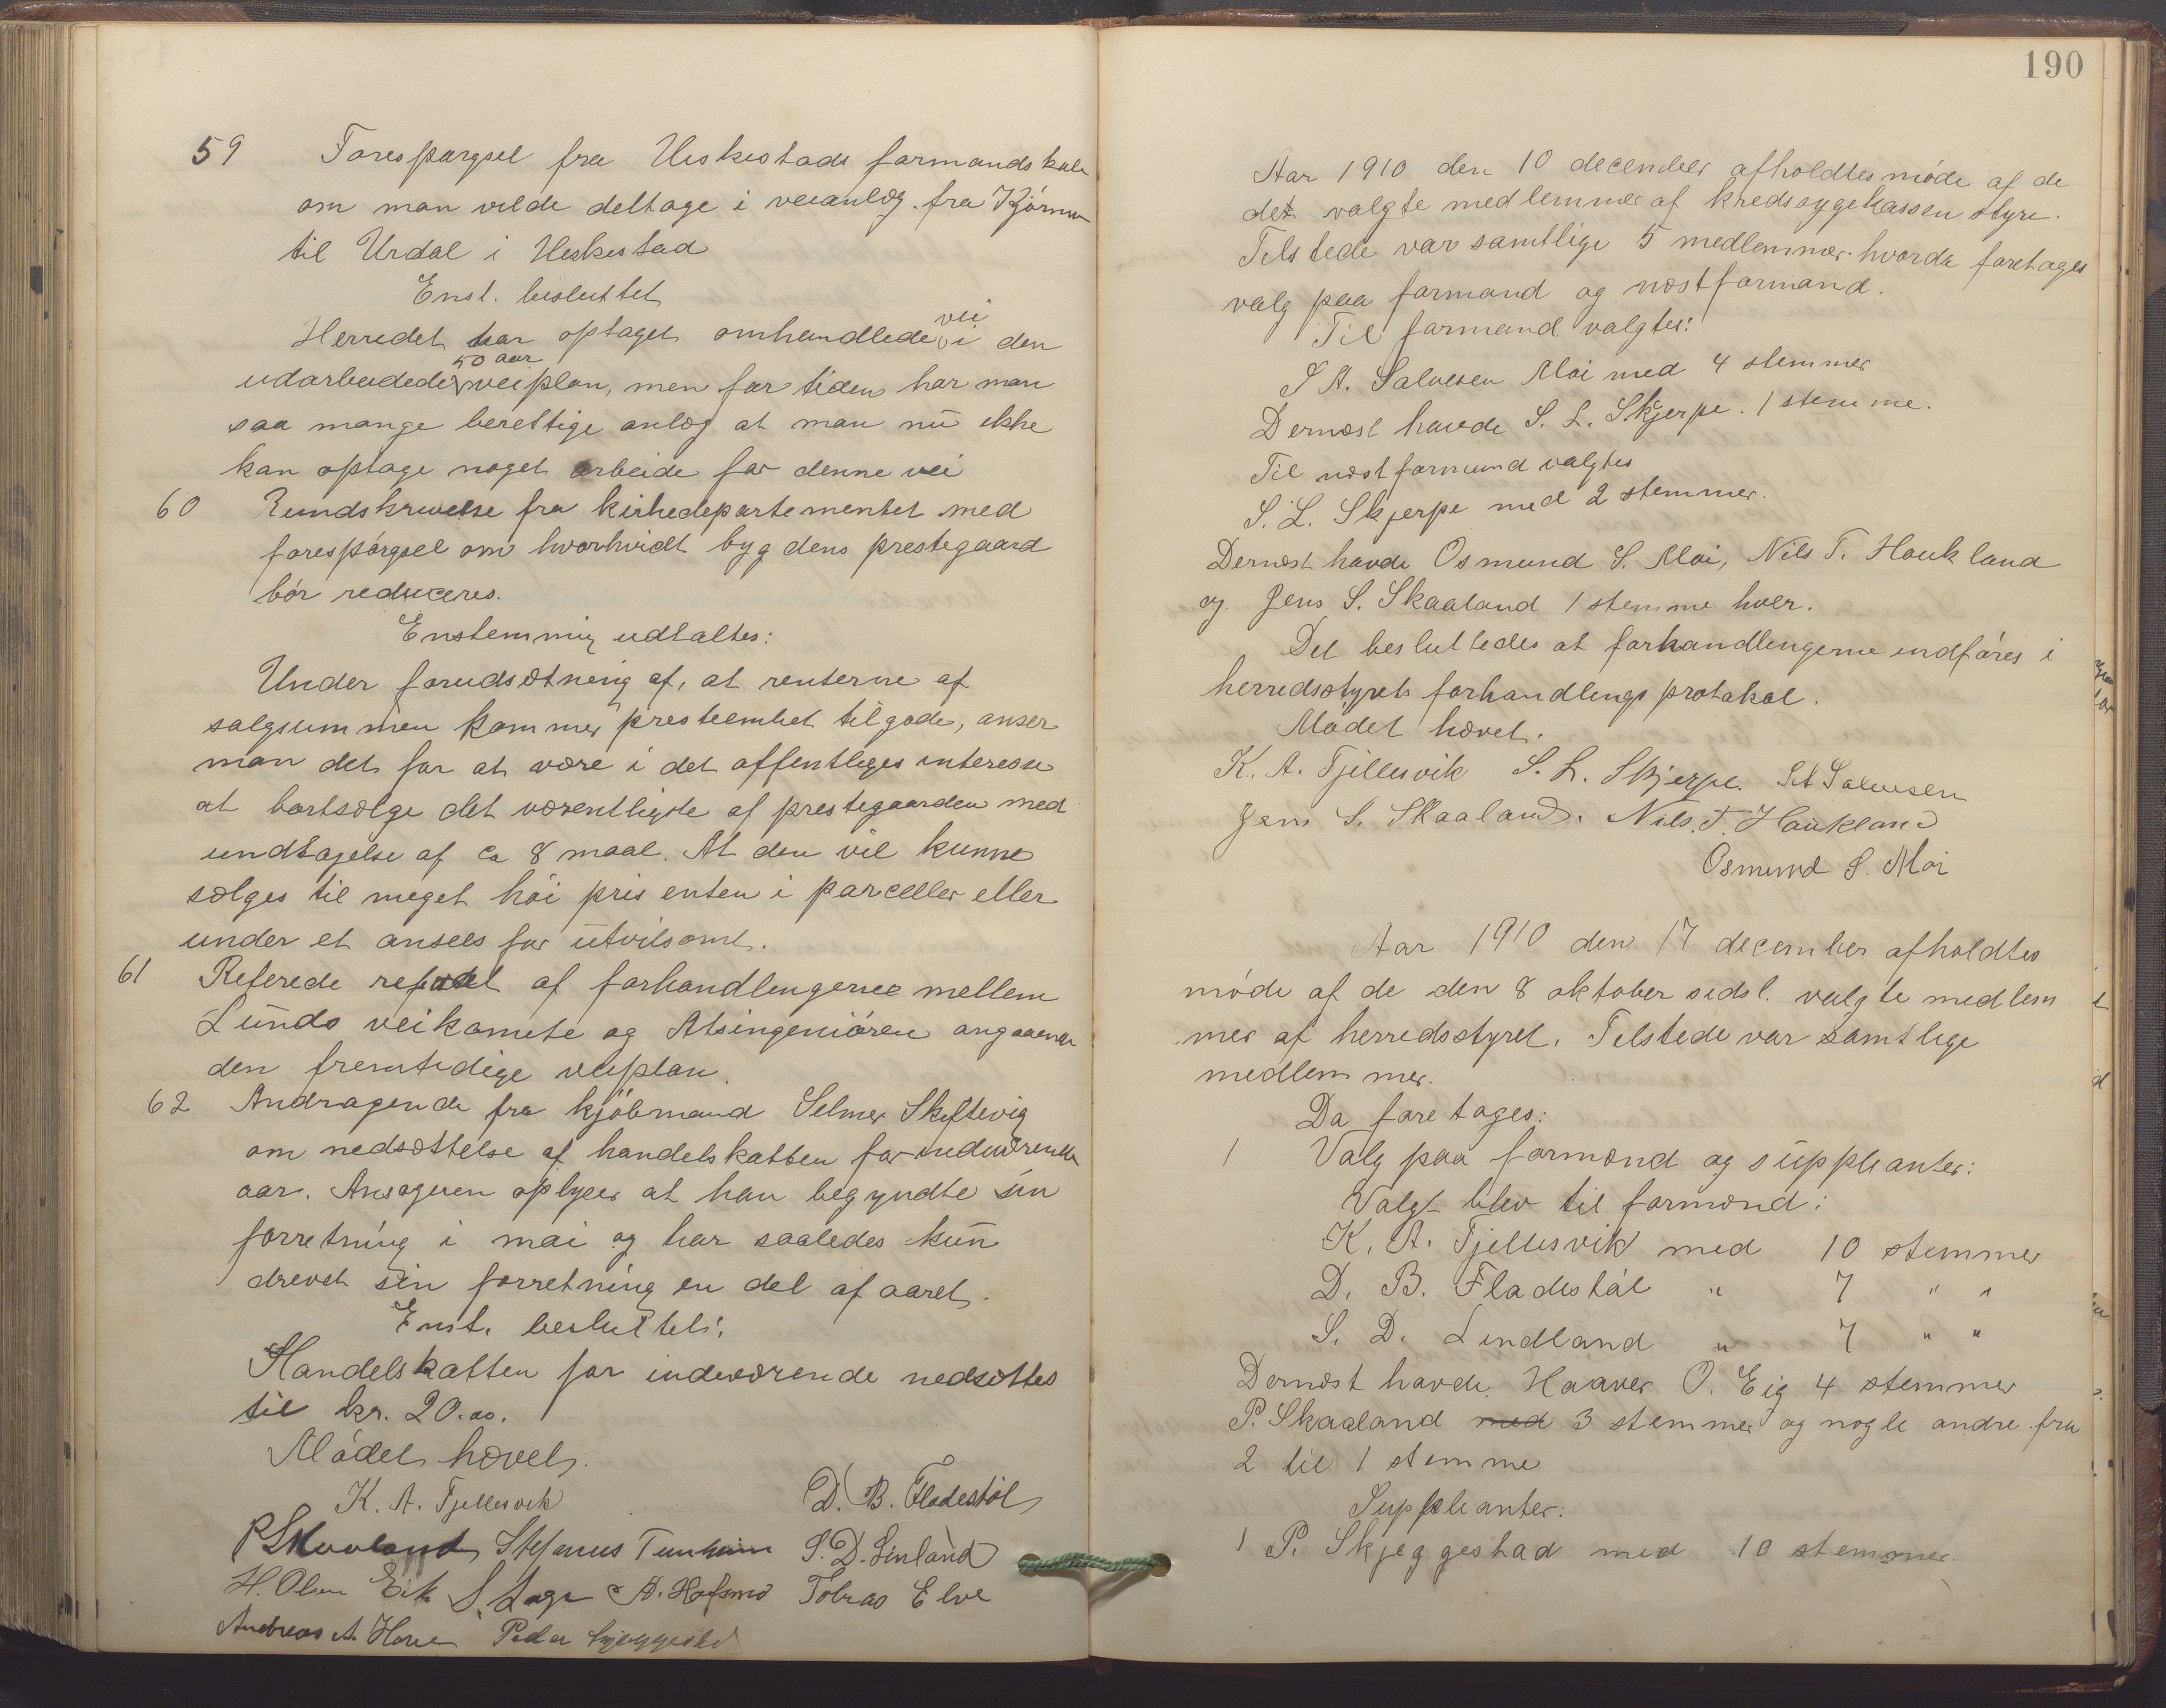 59 Forespørgsel fra Heskestads formandskab
om man vilde deltage i veianlæg fra Kjørmo
til Urdal i Heskestad
Enst. besluttet
Herredet har optaget omhandlede vei i den
udarbeidede 50 aar veiplan, men for tiden har man
saa mange berettige anlæg at man nu ikke
kan optage noget arbeide for denne vei
60 Rundskrivelse fra kirkedepartementet med
forespørgsel om hvorhvidt bygdens prestegaard
bør reduceres.
Enstemmig udtaltes:
Under forudsætning af, at renterne af
salgsummen kommer presteembet tilgode, anser
man det for at være i det offentliges interesse
at bortsælge det væsentligste af prestegaarden med
undtagelse af ca 8 maal. At den vil kunne
sælges til meget høi pris enten i parceller eller
under et ansees for utvilsomt.
61 Referede referat af forhandlingerne mellem
Lunds veikomite og Atsingeniøren angaaende
den fremtidige veiplan.
62 Andragende fra kjøbmand Selmer Skiftevig
om nedsættelse af handelskatten for indeværende
aar. Ansøgeren oplyser at han begyndte sin
forretning i mai og har saaledes kun
drevet sin forretning en del af aaret.
Enst. besluttet:
Handelskatten for indeværende nedsættes
til kr. 20.00.
Mødet hævet.
K. A. Fjellesvik D. B. Fladestøl
P Skaaland Stefanus Tunheim S. D. Linland
H. Olsen Eik S. Lage A. Hofsmo Tobias Elve
Andreas A. Hove Peder Skjeggestad
190
Aar 1910 den 10 december afholdtes møde af de
det valgte medlemmer af kredssygekassen styre.
Tilstede var samtlige 5 medlemmer. hvorda foretages
valg paa formand og næstformand.
Til formand valgtes:
S A. Salvesen Moi med 4 stemmer
Dernæst havde S. L. Skjerpe. 1 stemme.
Til næstformand valgtes
S. L. Skjerpe med 2 stemmer.
Dernæst havde Osmund S. Moi, Nils T. Haukland
og Jens S. Skaaland 1 stemme hver.
Det besluttedes at forhandlingerne indføres i
herredsstyrets forhandlings protokol.
Mødet hævet.
K. A. Fjellesvik S. L. Skjerpe. S A Salvesen
Jens S. Skaaland. Nils. T. Haukland
Osmund S. Moi
Aar 1910 den 17 december afholdtes
møde af de den 8 oktober sidst. valgte medlem
mer af herredsstyret. Tilstede var samtlige
medlemmer.
Da foretages:
1 Valg paa formænd og suppleanter:
Valgt blev til formænd:
K. A. Fjellesvik med 10 stemmer
D. B. Fladestøl " 7 " "
S. D. Lindland " 7 " "
Dernæst havde Haaver O. Eig 4 stemmer
P. Skaaland med 3 stemmer og nogle andre fra
2 til 1 stemme
Suppleanter:
1 P. Skjeggestad med 10 stemmer.